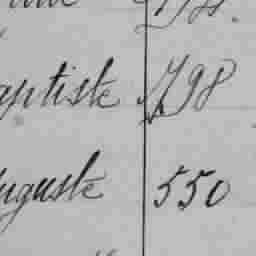 aptiste 798
uguste 550